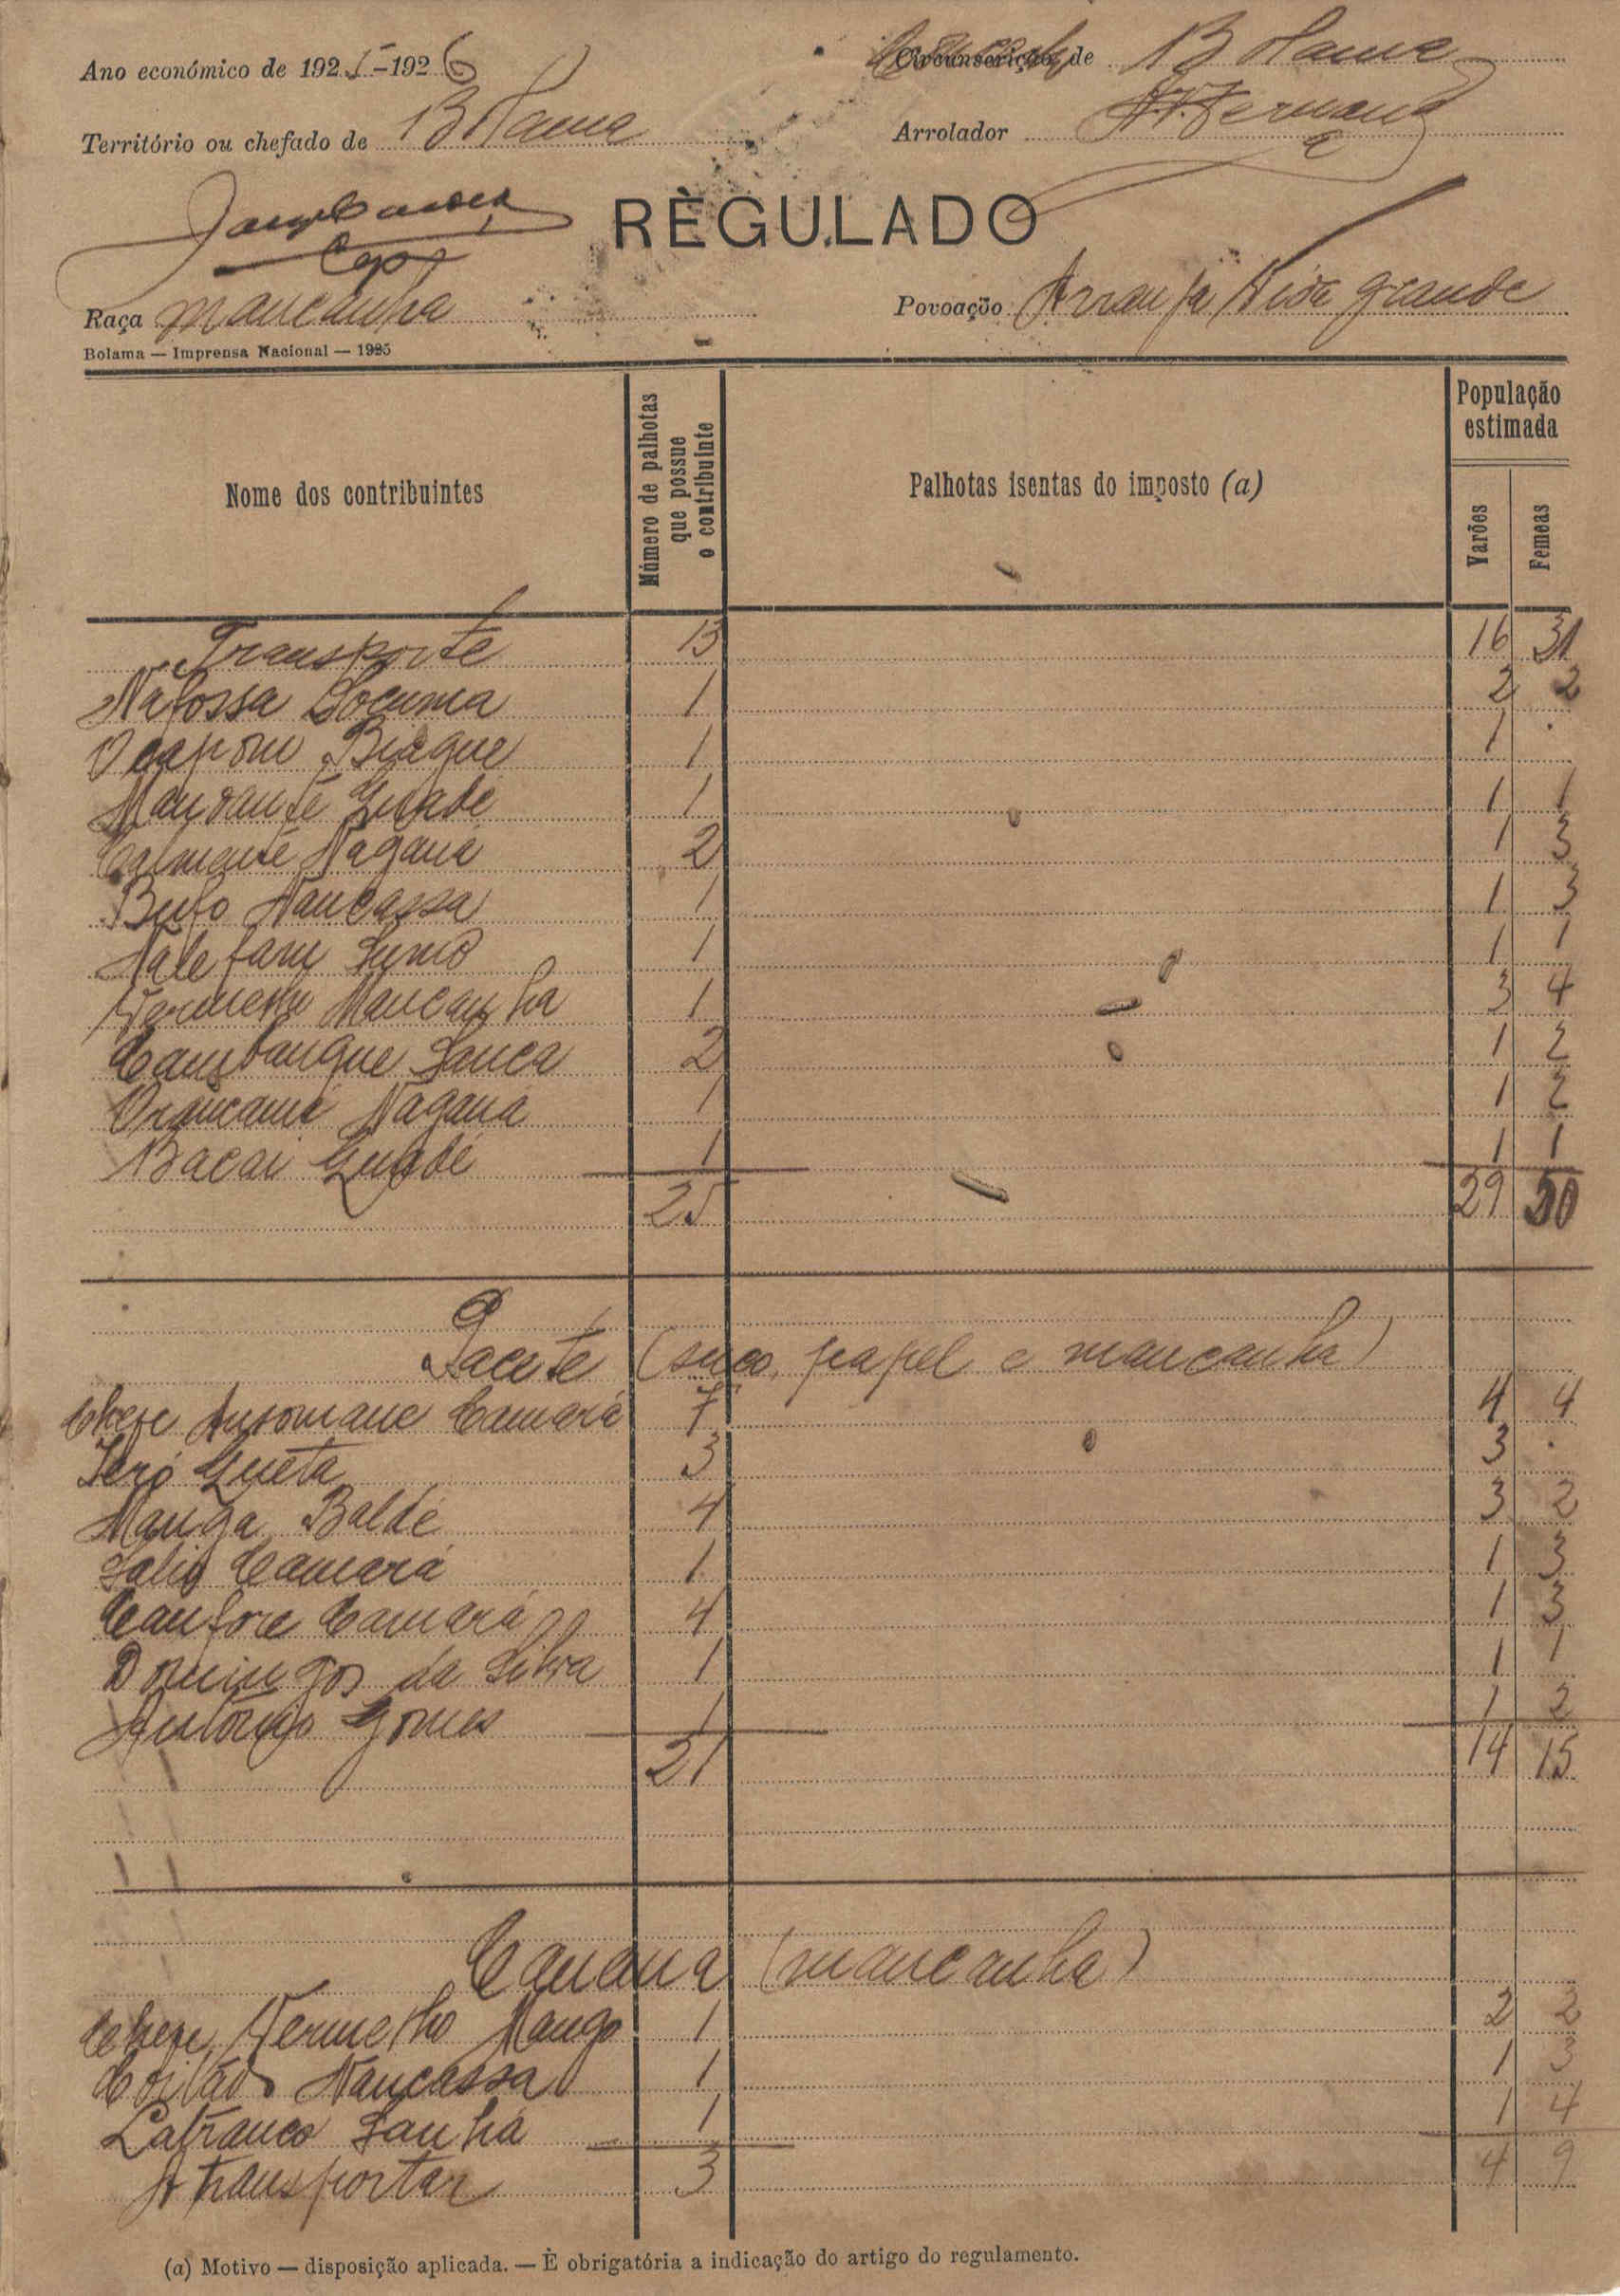 Ano económico de 1925-1926 Concelho de Bolama
Território ou chefado de Bolama Arrolador Fernand
RÈGULADO
Raça mancanha Povoação Arranja Vida grande
Bolama — Imprensa Nacional — 1925
Nome dos contribuintes
Número de palhotas que possue o contribuinte
Palhotas isentas do imposto (a)
População estimada
Varões Femeas
Transporte 13 16 31
Nafossa Locuma 1 2 2
Biague 1 1 .
Guabé 1 1 1
Calmanté Nagana 2 1 3
Bufo Nancassa 1 1 3
1 1 1
Vermelho Mancanha 1 3 4
Cambangue Sanca 2 1 2
Nagana 1 1 2
Bacar Guabé 1 1 1
25 29 50
(suco, papel e mancanha)
Chefe Ansomane Camará 7 4 4
Iéró Gueta 3 3 .
Manga Baldé 4 3 2
Salio Camará 1 1 3
Canfore Camará 4 1 3
Domingos da Silva 1 1 1
António Gomes 1 1 2
21 14 15
(mancanha)
Chefe, Vermelho Mango 1 2 2
Coitado Nancassa 1 1 3
Lafranco Sanhá 1 1 4
A transportar 3 4 9
(a) Motivo — disposição aplicada. — È obrigatória a indicação do artigo do regulamento.